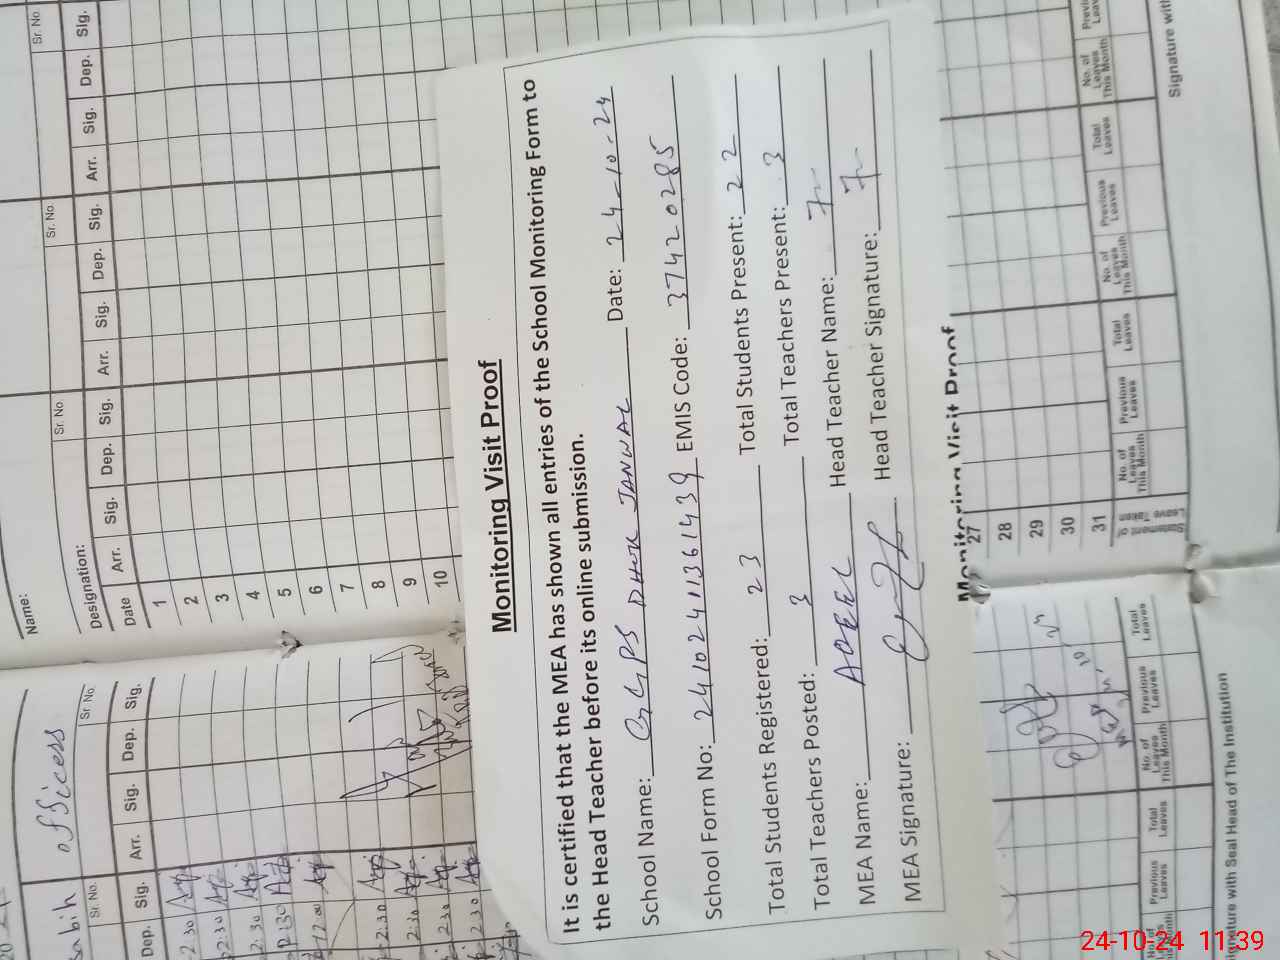 Monitoring Visit Proof
It is certified that the MEA has shown all entries of the School Monitoring Form to
the Head Teacher before its online submission.
School Name: GGPS DHOK JANWAL Date: 24-10-24
School Form No: 24102411361439 EMIS Code: 37420285
Total Students Registered: 23 Total Students Present: 22
Total Teachers Posted: 3 Total Teachers Present: 3
MEA Name: ADEEL Head Teacher Name:
MEA Signature: Head Teacher Signature:
Monitoring Visit Proof
Name:
Sr. No. Sr. No. Sr. No.
Designation:
Date Arr. Sig. Dep. Sig. Arr. Sig. Dep. Sig. Arr. Sig. Dep. Sig.
1
2
3
4
5
6
7
8
9
10
27
28
29
30
31
Statement of Leave Taken
No. of Leaves This Month Previous Leaves Total Leaves No. of Leaves This Month Previous Leaves Total Leaves No. of Leaves This Month
Signature with
sabih officess
Sr. No. Sr. No.
Dep. Sig. Arr. Sig. Dep. Sig.
2:30
2:30
2:30
2:30
12:00
2:30
2:30
2:30
2:30
Previous Leaves Total Leaves No. of Leaves This Month Previous Leaves Total Leaves
ignature with Seal Head of The Institution
24-10-24 11:39